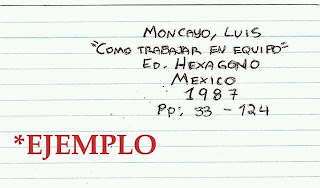 MONCAYO, LUIS
"COMO TRABAJAR EN EQUIPO"
ED. HEXAGONO
MEXICO
1987
Pp: 33 - 124
*EJEMPLO